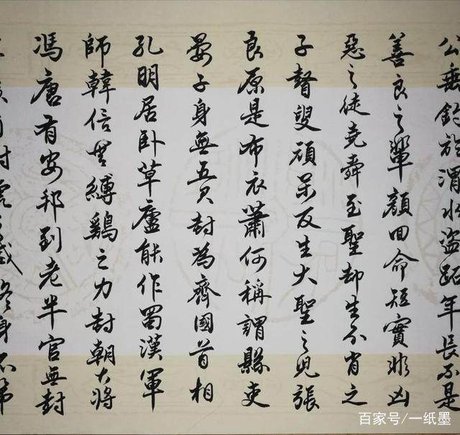 公垂釣於渭水盜跖年長不是
善良之輩顏回命短實非凶
惡之徒堯舜至聖却生不肖之
子瞽叟頑呆反生大聖之兒張
良原是布衣蕭何稱謂縣吏
晏子身無五尺封為齊國首相
孔明居卧草廬能作蜀漢軍
師韓信無縛鷄之力封朝大將
馮唐有安邦到老半官無封
有射虎之威終身不第
百家号/一纸墨